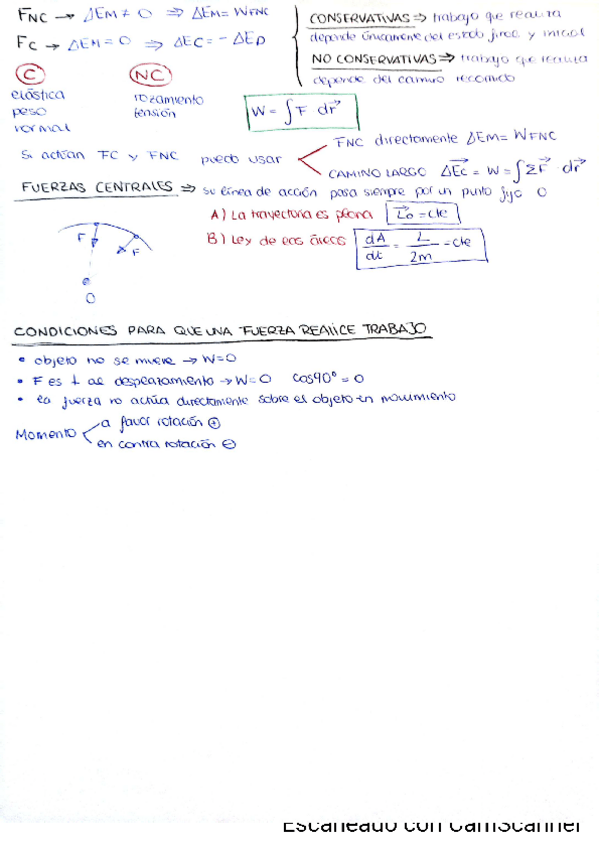 FNC → ΔEM ≠ 0 ⇒ ΔEM = WFNC
FC → ΔEM = 0 ⇒ ΔEC = - ΔEp
CONSERVATIVAS ⇒ trabajo que realiza
depende únicamente del estado final y inicial
NO CONSERVATIVAS ⇒ trabajo que realiza
depende del camino recorrido
C NC
elástica rozamiento
peso tensión
normal
W = ∫ F dr⃗
Si actúan FC y FNC puedo usar
FNC directamente ΔEM = WFNC
CAMINO LARGO ΔEc = W = ∫ΣF⃗ · dr⃗
FUERZAS CENTRALES ⇒ su línea de acción pasa siempre por un punto fijo O
A) La trayectoria es plana L⃗o = cte
B) Ley de las áreas dA/dt = L/2m = cte
F F
O
CONDICIONES PARA QUE UNA FUERZA REALICE TRABAJO
• objeto no se mueve → W=0
• F es ⊥ al desplazamiento → W=0 cos90º = 0
• la fuerza no actúa directamente sobre el objeto en movimiento
Momento
a favor rotación ⊕
en contra rotación ⊖
Escaneado con CamScanner